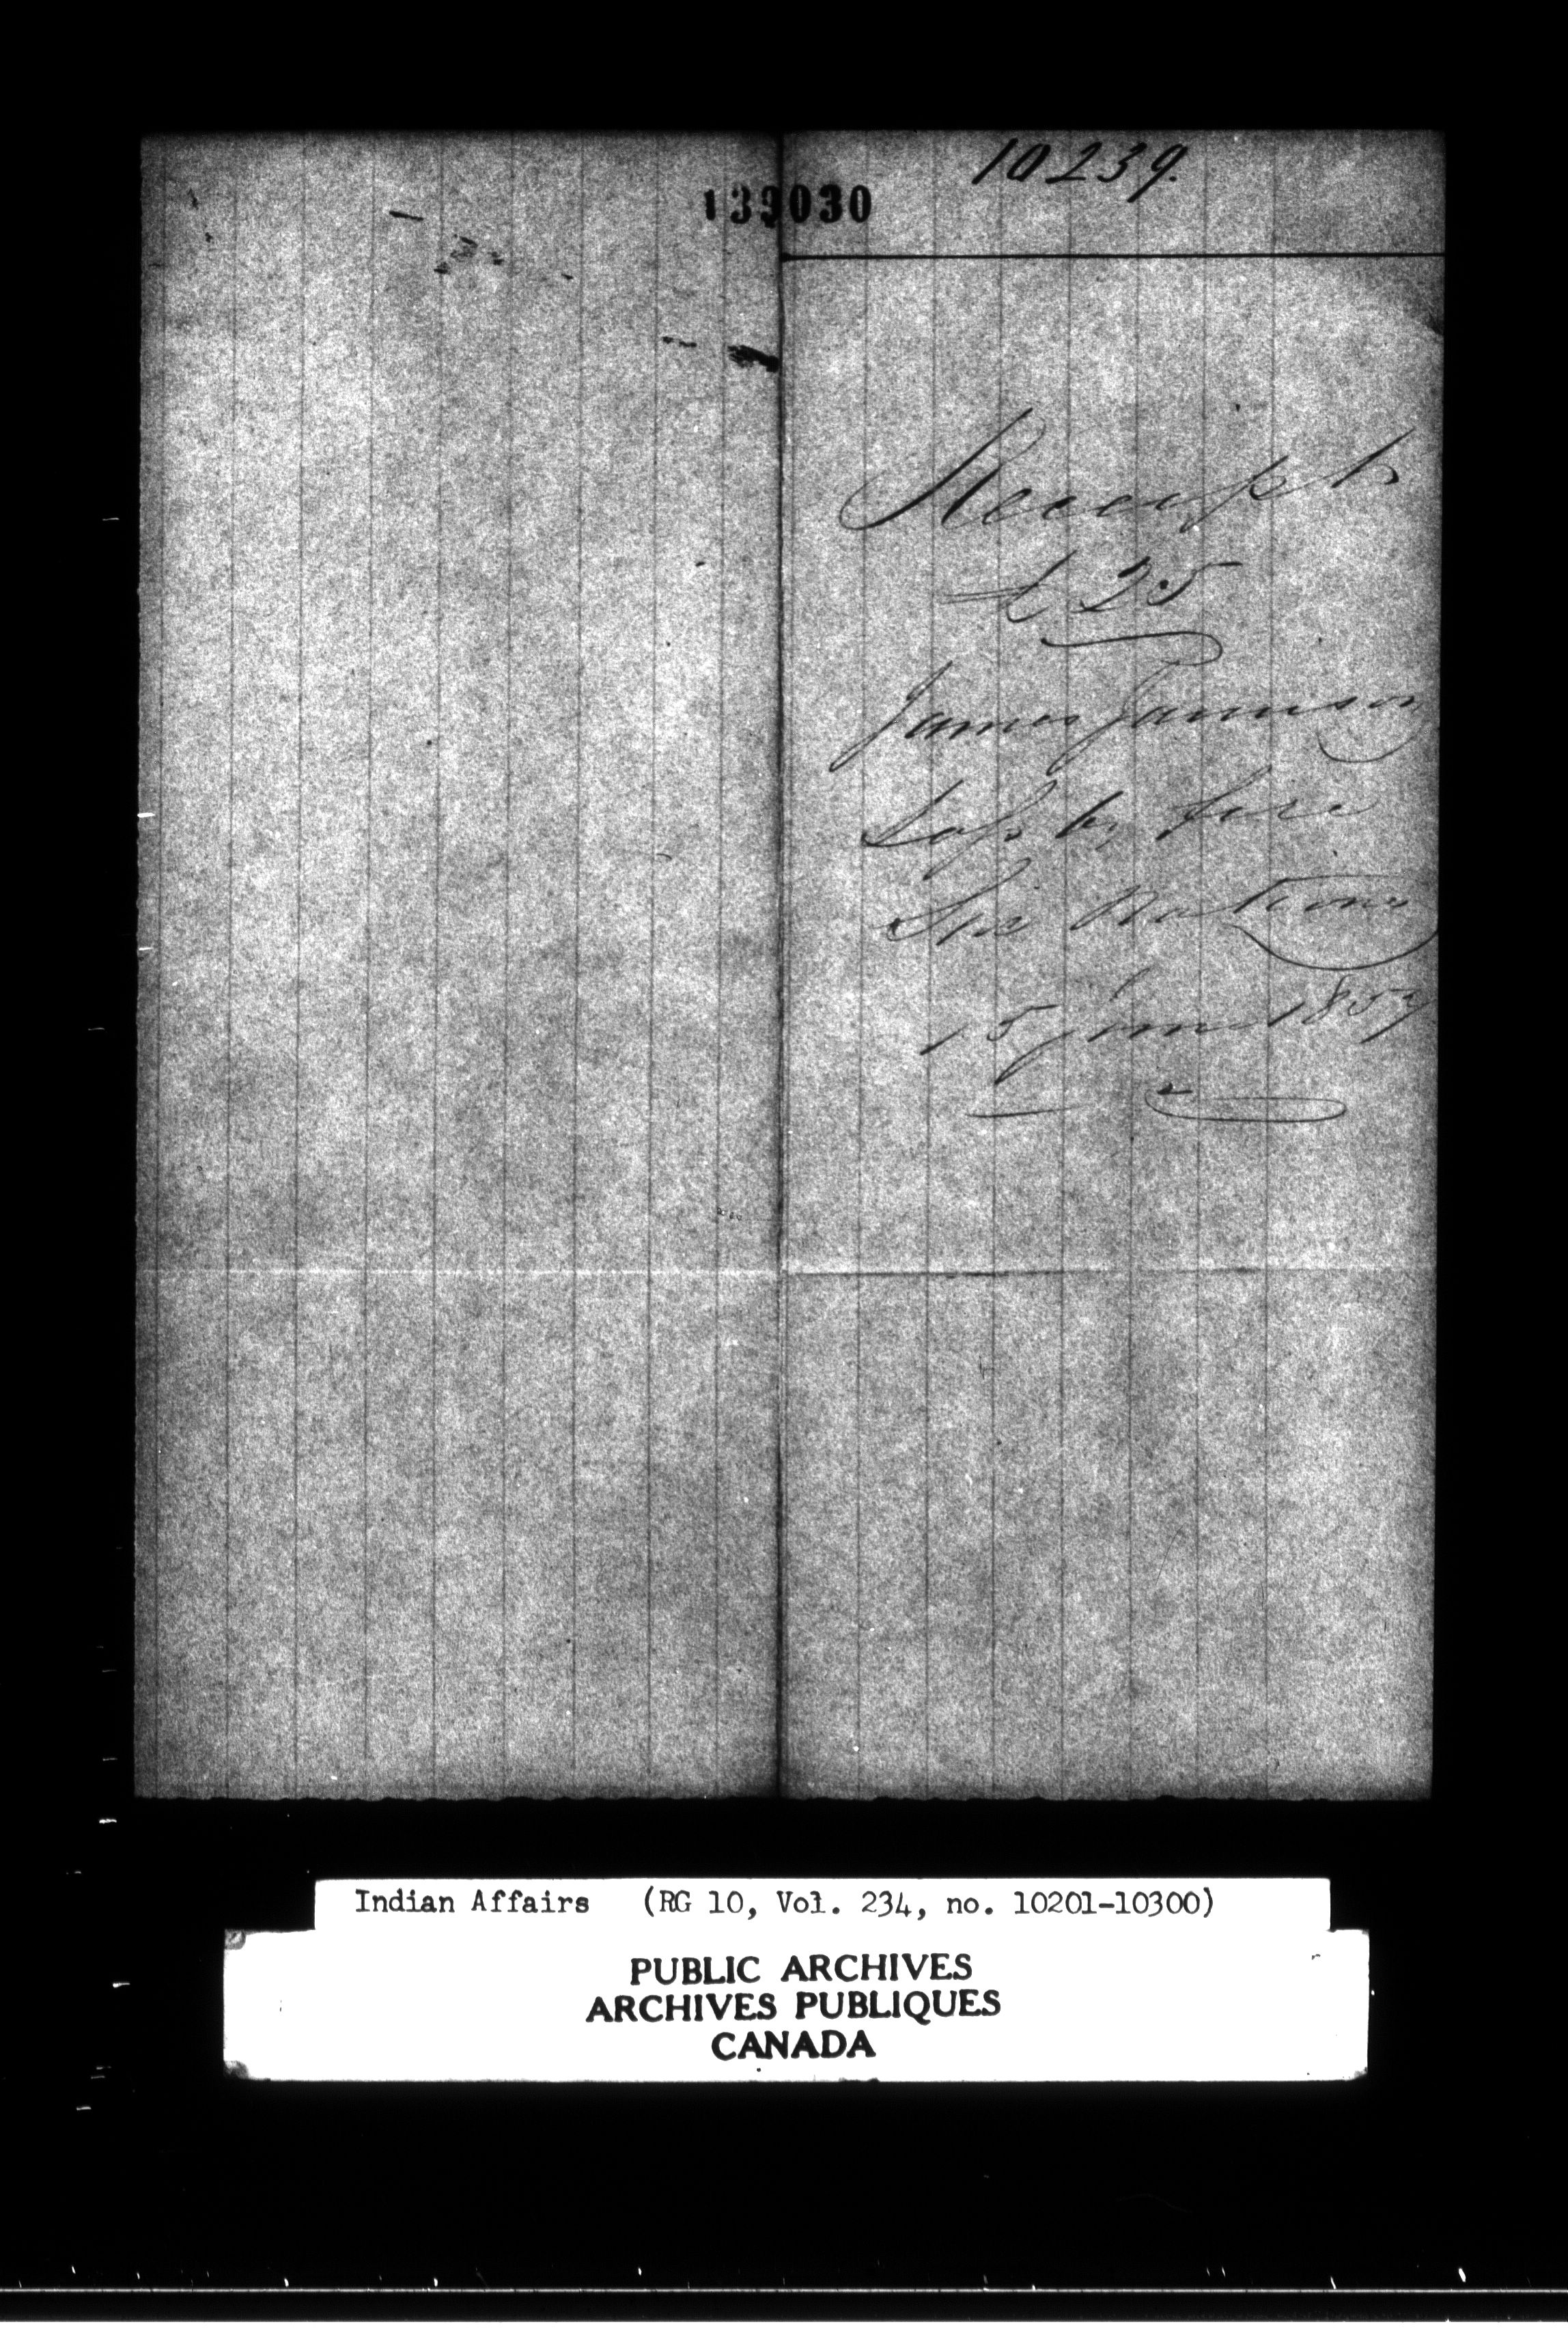 10239.
139030
Receipt
£25
James Jamieson
Loss by fire
Six Nations
15 June 1857
Indian Affairs (RG 10, Vol. 234, no. 10201-10300)
PUBLIC ARCHIVES
ARCHIVES PUBLIQUES
CANADA